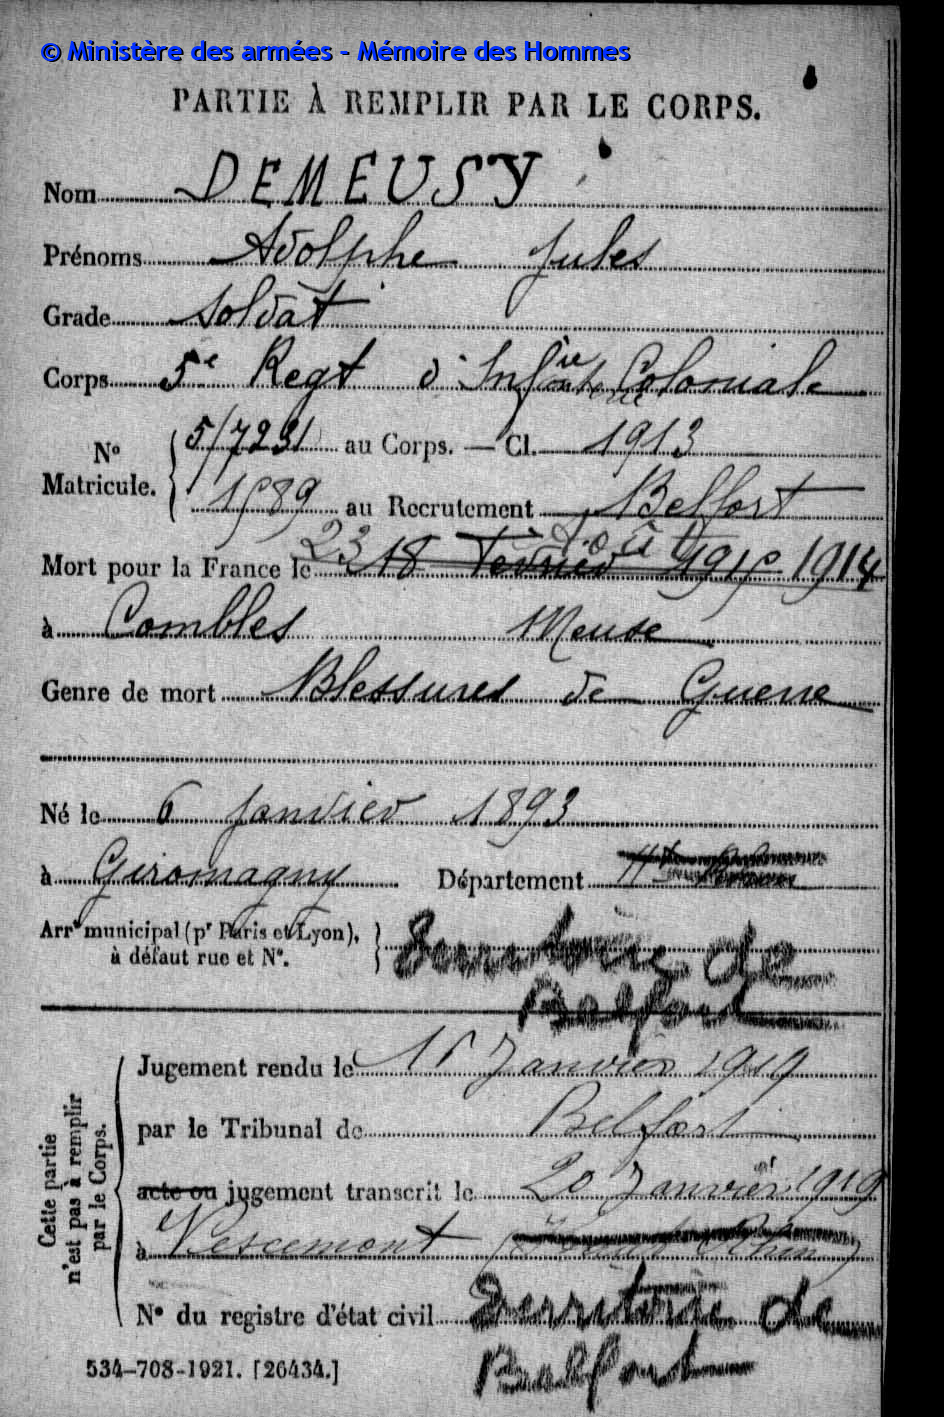 © Ministère des armées - Mémoire des Hommes
PARTIE À REMPLIR PAR LE CORPS.
Nom DEMEUSY
Prénoms Adolphe Jules
Grade soldat
Corps 5e Regt d'Infanterie Coloniale
N° Matricule. 5/7231 au Corps. — Cl. 1913
1589 au Recrutement Belfort
23 Août
Mort pour la France le 18 Février 1915 1914
à Combles Meuse
Genre de mort Blessures de Guerre
Né le 6 Janvier 1893
à Giromagny Département Ht Rhin
Arrt municipal (pr Paris et Lyon), à défaut rue et N°. Territoire de
Belfort
Cette partie n'est pas à remplir par le Corps.
Jugement rendu le 15 Janvier 1919
par le Tribunal de Belfort
acte ou jugement transcrit le 20 Janvier 1919
à Vescemont (Haut Rhin)
N° du registre d'état civil Territoire de
Belfort
534-708-1921. [26434.]